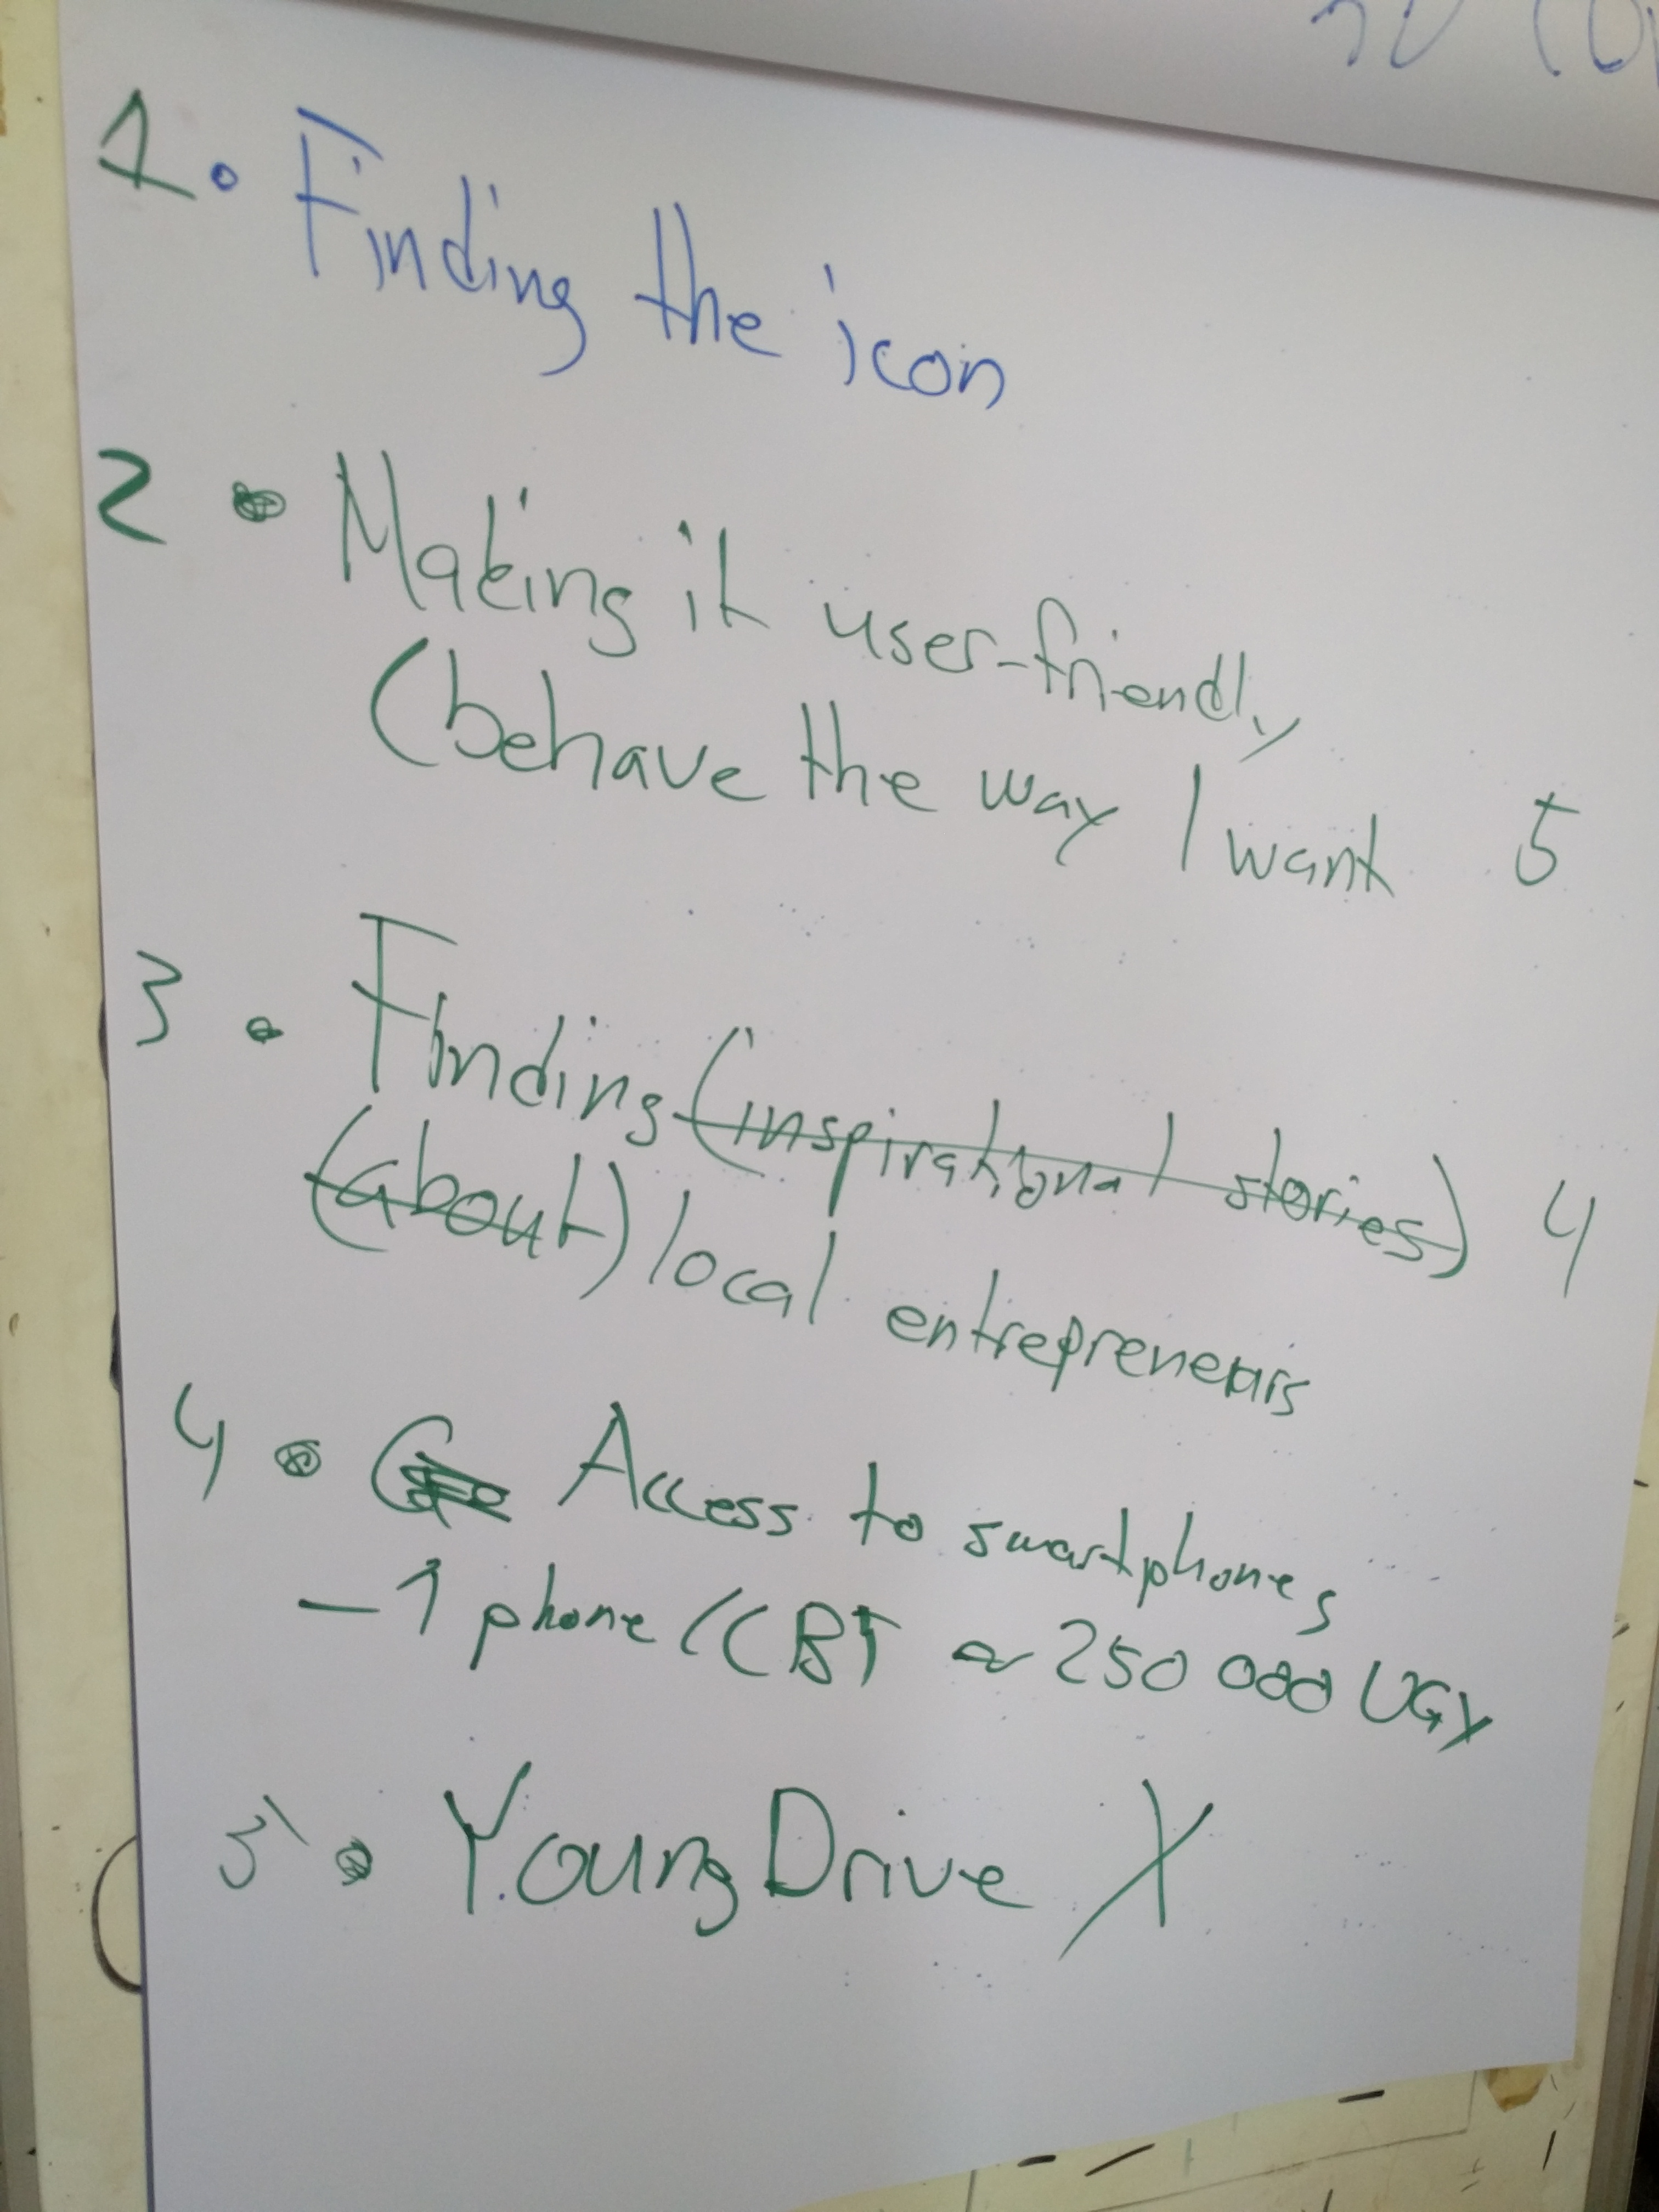 1. Finding the icon
2 • Making it user-friendly
(behave the way I want 5
3 • Finding (inspirational stories) 4
(about) local entrepreneurs
4 • Access to smartphones
- 1 phone / CBT ~ 250 000 UGX
5 • YoungDrive X